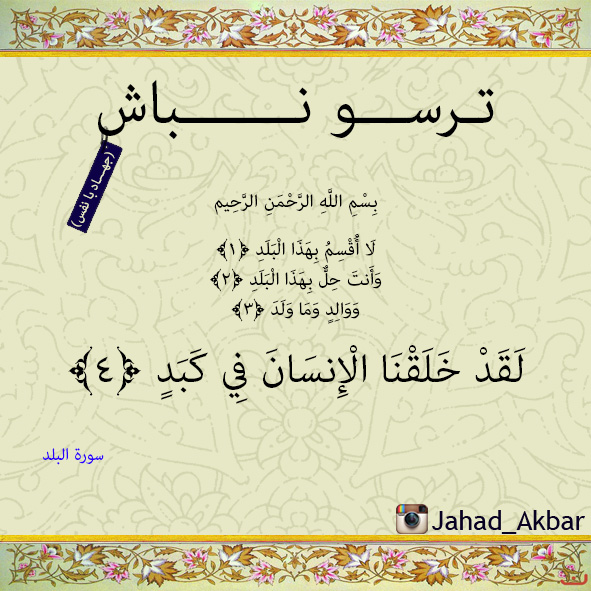 ترسو نباش
(جهاد با نفس)
بِسْمِ اللَّهِ الرَّحْمَنِ الرَّحِيم
لَا أُقْسِمُ بِهَذَا الْبَلَدِ ﴿١﴾
وَأَنتَ حِلٌّ بِهَذَا الْبَلَدِ ﴿٢﴾
وَوَالِدٍ وَمَا وَلَدَ ﴿٣﴾
لَقَدْ خَلَقْنَا الْإِنسَانَ فِي كَبَدٍ ﴿٤﴾
سورة البلد
Jahad_Akbar